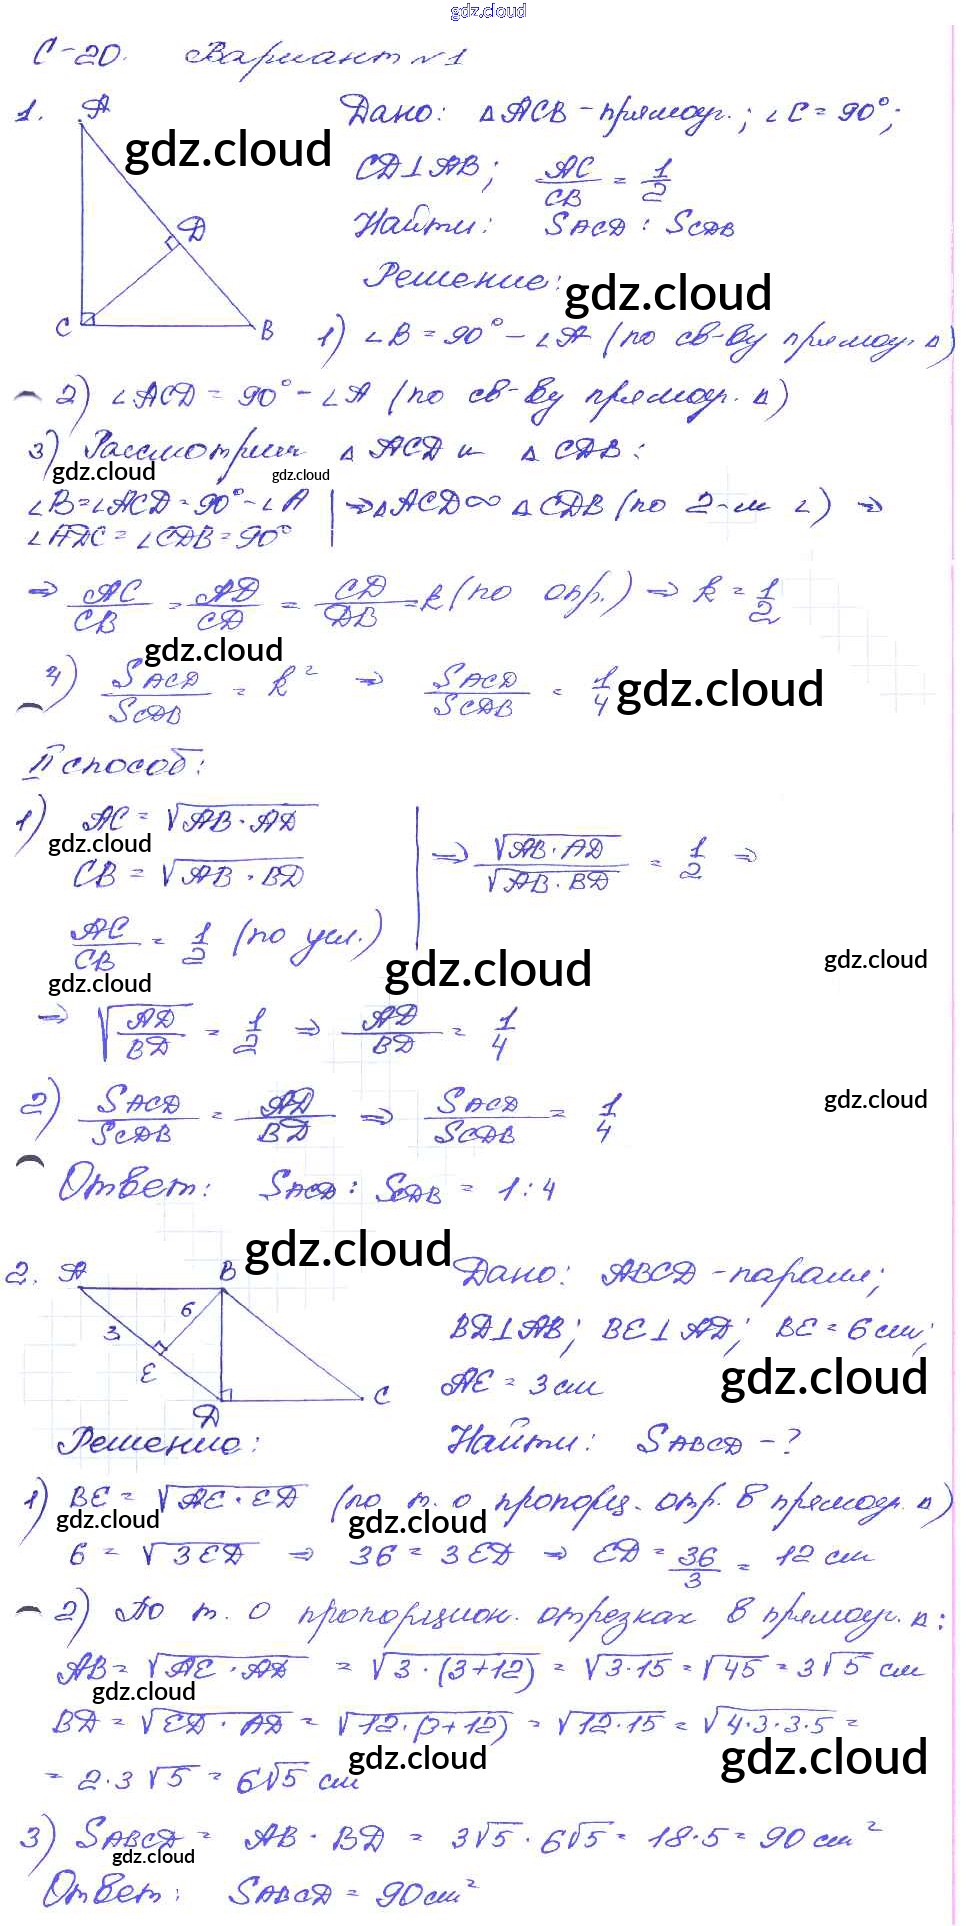 gdz.cloud
С-20. Вариант №1
1. A
D
C
B
gdz.cloud
Дано: △ACB - прямоуг.; ∠C = 90°;
CD⊥AB; AC/CB = 1/2
Найти: SACD : SCDB
Решение:
gdz.cloud
1) ∠B = 90° - ∠A (по св-ву прямоуг. △)
2) ∠ACD = 90° - ∠A (по св-ву прямоуг. △)
3) Рассмотрим △ACD и △CDB:
gdz.cloud
gdz.cloud
∠B = ∠ACD = 90° - ∠A | ⇒ △ACD ∞ △CDB (по 2-м ∠) ⇒
∠ADC = ∠CDB = 90°
⇒ AC/CB = AD/CD = CD/DB = k (по опр.) ⇒ k = 1/2
gdz.cloud
4) SACD/SCDB = k² ⇒ SACD/SCDB = 1/4
gdz.cloud
II способ:
1) AC = √AB · AD
gdz.cloud
CB = √AB · BD
⇒ √AB · AD / √AB · BD = 1/2 ⇒
AC/CB = 1/2 (по усл.)
gdz.cloud
gdz.cloud
gdz.cloud
⇒ √AD/BD = 1/2 ⇒ AD/BD = 1/4
2) SACD/SCDB = AD/BD ⇒ SACD/SCDB = 1/4
gdz.cloud
Ответ: SACD : SCDB = 1 : 4
gdz.cloud
2. A
B
6
3
E
D
C
Дано: ABCD - паралл;
BD⊥AB; BE⊥AD; BE = 6 см;
AE = 3 см
gdz.cloud
Найти: SABCD - ?
Решение:
1) BE = √AE · ED (по т. о пропорц. отр. в прямоуг. △)
gdz.cloud
gdz.cloud
6 = √3ED ⇒ 36 = 3ED ⇒ ED = 36/3 = 12 см
2) По т. о пропорцион. отрезках в прямоуг. △:
AB = √AE · AD = √3 · (3+12) = √3·15 = √45 = 3√5 см
gdz.cloud
BD = √ED · AD = √12·(3+12) = √12·15 = √4·3·3·5 =
gdz.cloud
gdz.cloud
= 2·3√5 = 6√5 см
3) SABCD = AB · BD = 3√5 · 6√5 = 18·5 = 90 см²
gdz.cloud
Ответ: SABCD = 90 см²